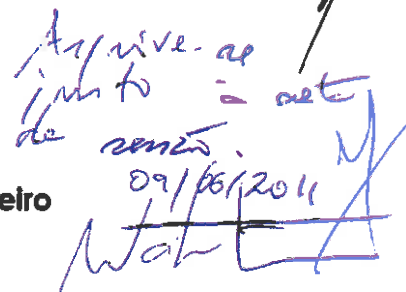 Arquive-se
junto à acta
da sessão.
eiro
09/06/2011